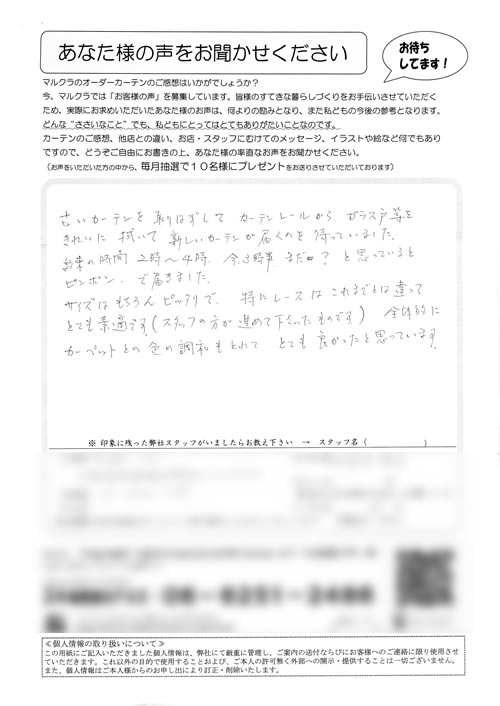 あなた様の声をお聞かせください
お待ち
してます！
マルクラのオーダーカーテンのご感想はいかがでしょうか？
今、マルクラでは「お客様の声」を募集しています。皆様のすてきな暮らしづくりをお手伝いさせていただく
ため、実際にお求めいただいたあなた様のお声は、何よりの励みとなり、また私どもの今後の参考となります。
どんな“ささいなこと”でも、私どもにとってはとてもありがたいことなのです。
カーテンのご感想、他店との違い、お店・スタッフにむけてのメッセージ、イラストや絵など何でもあり
ですので、どうぞご自由にお書きの上、あなた様の率直なお声をお聞かせください。
（お声をいただいた方の中から、毎月抽選で１０名様にプレゼントをお送りさせていただいております）
古いカーテンを取りはずして カーテンレールから、ガラス戸等を
きれいに拭いて 新しいカーテンが届くのを待っていました。
約束の時間 2時～4時、今、3時半 まだか？と思っていると
ピンポン、で届きました。
サイズはもちろんピッタリで、特にレースはこれまでとは違って
とても素適です（スタッフの方が進めて下さったものです） 全体的に
カーペットとの色の調和もとれて とても良かったと思っています。
※ 印象に残った弊社スタッフがいましたらお教え下さい → スタッフ名（ ）
≪個人情報の取り扱いについて≫
この用紙にご記入いただきました個人情報は、弊社にて厳重に管理し、ご案内の送付ならびにお客様へのご連絡に限り使用させ
ていただきます。これ以外の目的で使用することおよび、ご本人の許可無く外部への開示・提供することは一切ございません。
また、個人情報はご本人様からのお申し出により訂正・削除いたします。